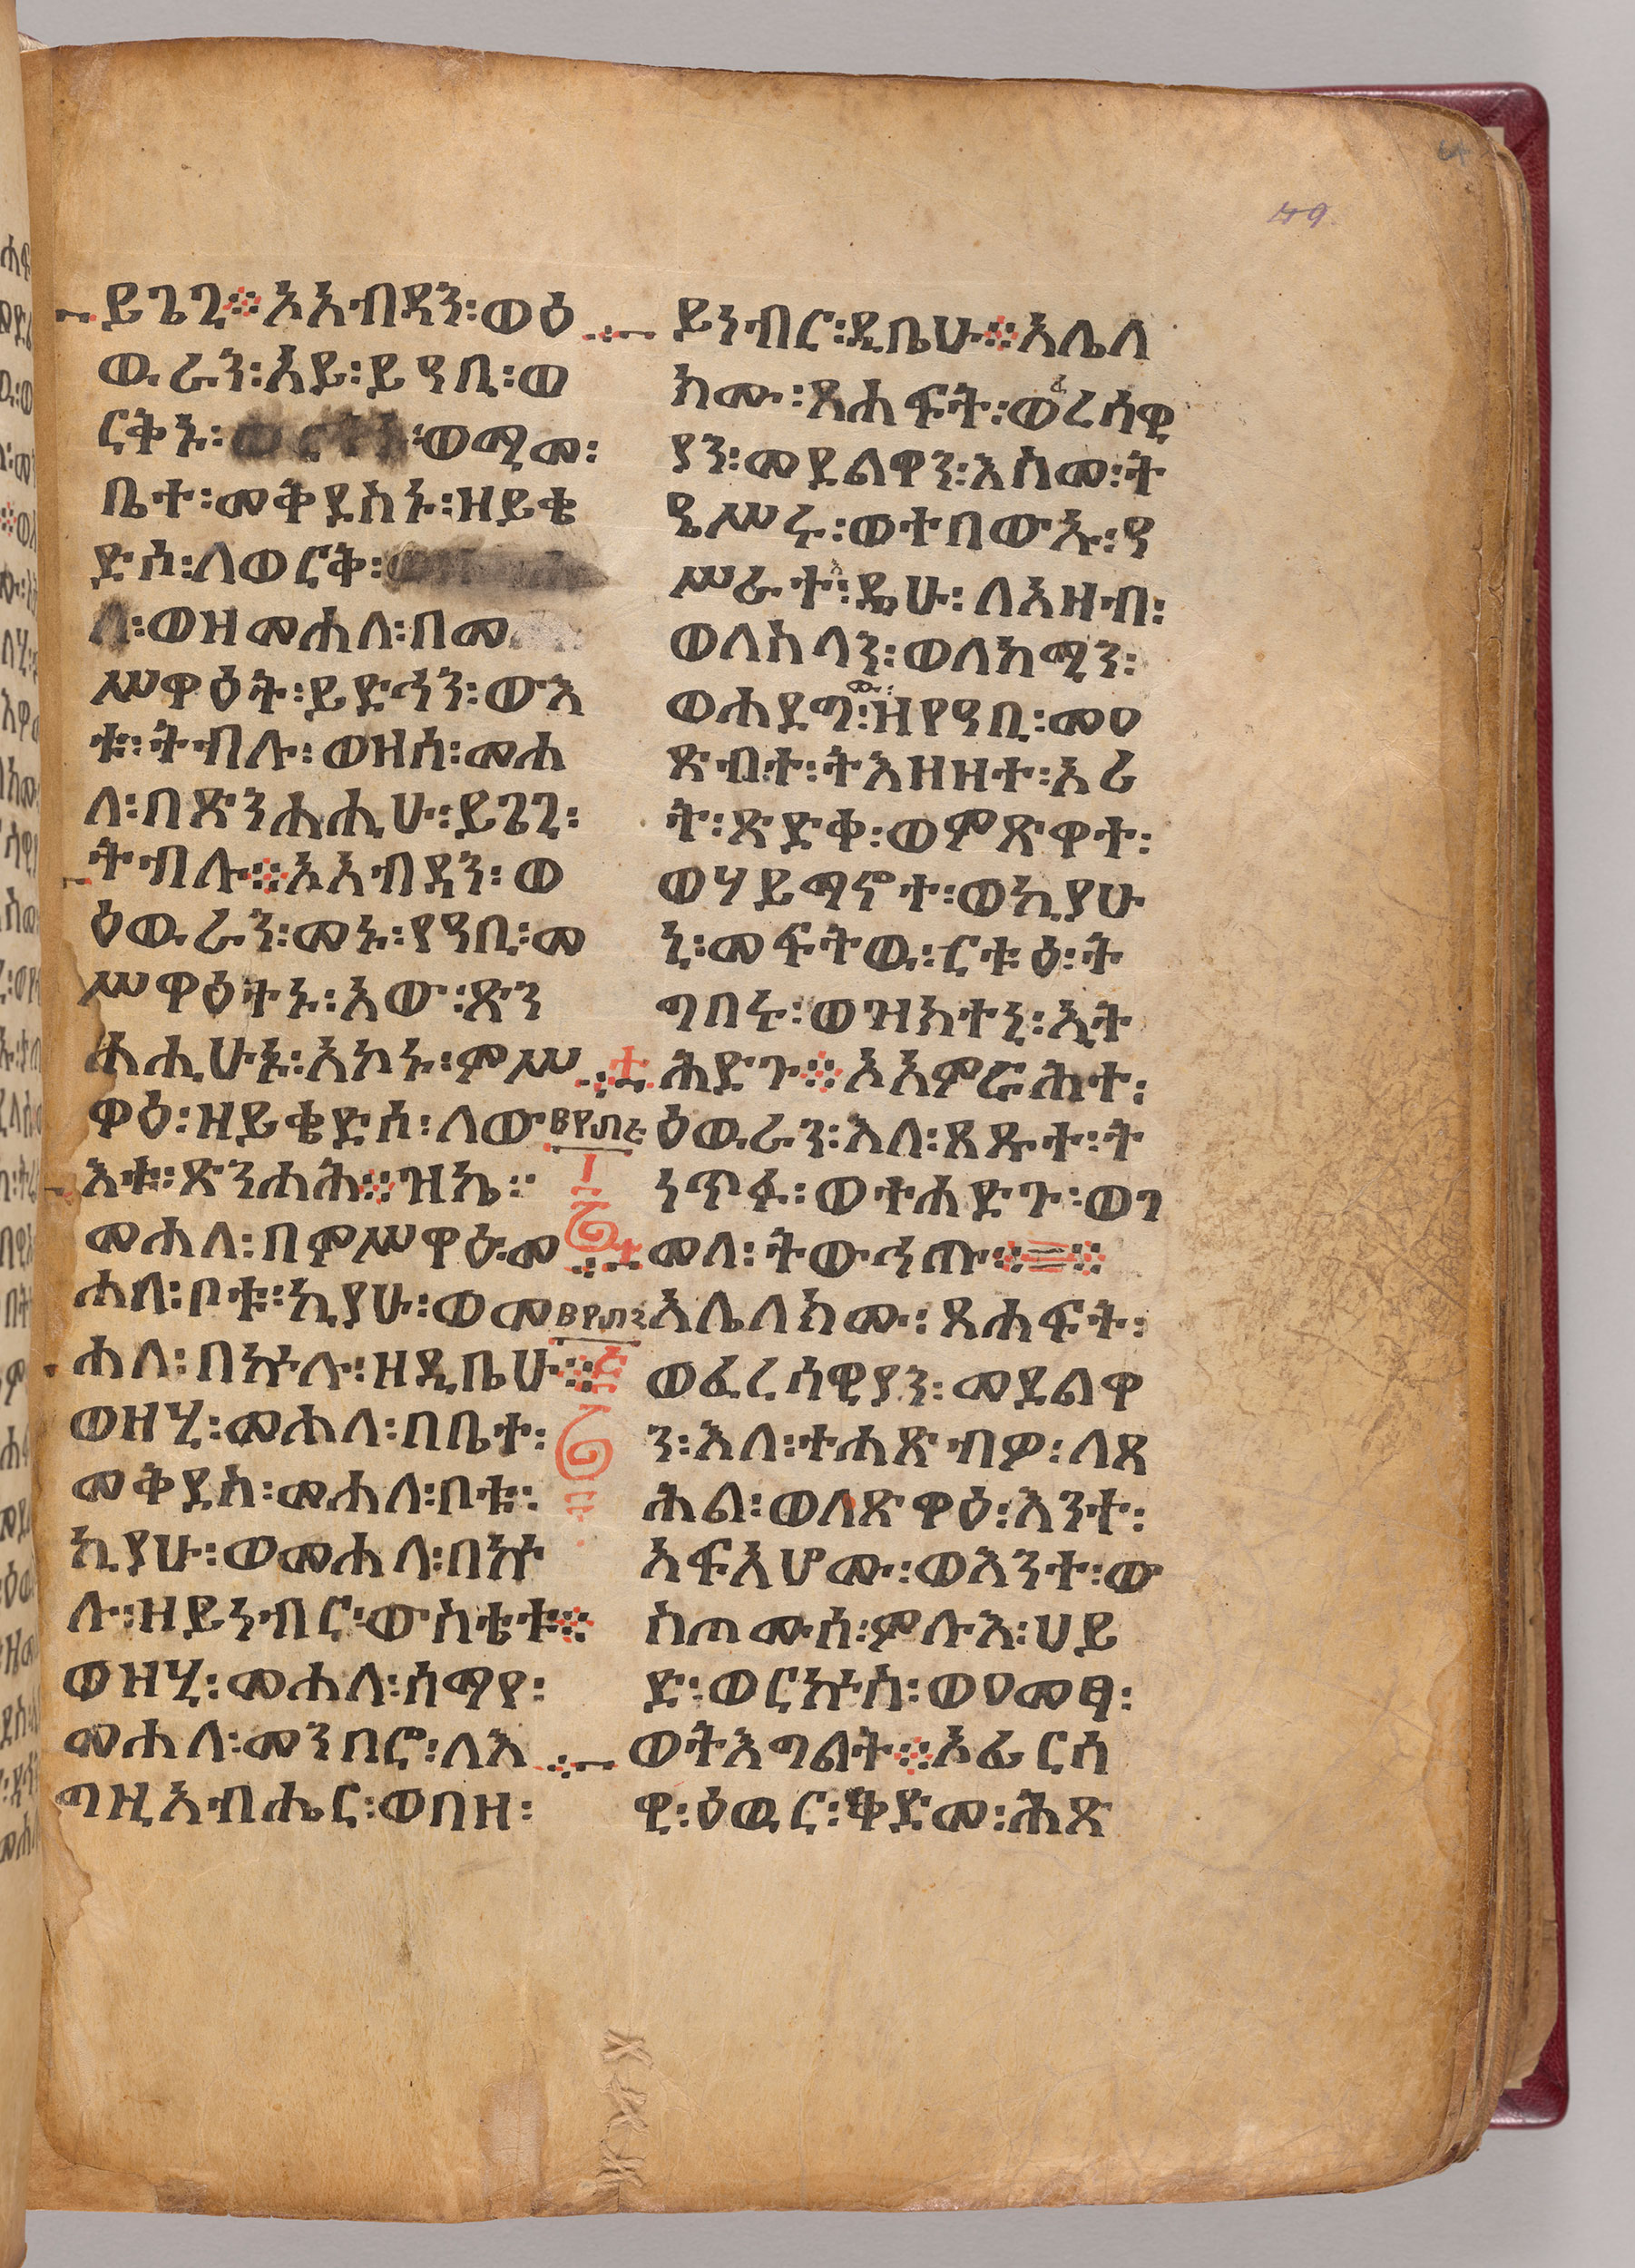 ይጌጊ፨ኦአብዳን፡ወዕ
ዉራን፡አይ፡ይዓቢ፡ወ
ርቅኑ፡ወሚመ፡
ቤተ፡መቅደስኑ፡ዘይቄ
ድሶ፡ለወርቅ፡
ወዘመሐለ፡በመ
ሥዋዕት፡ይድኅን፡ውእ
ቱ፡ትብሉ፡ወዘሰ፡መሐ
ለ፡በጽንሐሒሁ፡ይጌጊ፡
ትብሉ፨ኦአብዳን፡ወ
ዕዉራን፡መኑ፡የዓቢ፡መ
ሥዋዕትኑ፡አው፡ጽን
ሐሒሁኑ፡አኮኑ፡ምሥ
ዋዕ፡ዘይቄድሶ፡ለው
እቱ፡ጽንሐሕ፨ዝኬ፡
መሐለ፡በምሥዋዕ፡መ
ሐለ፡ቦቱ፡ኪያሁ፡ወመ
ሐለ፡በኵሉ፡ዘዲቤሁ፨
ወዘሂ፡መሐለ፡በቤተ፡
መቅደስ፡መሐለ፡ቦቱ፡
ኪያሁ፡ወመሐለ፡በኵ
ሉ፡ዘይነብር፡ውስቴቱ፨
ወዝሂ፡መሐለ፡ሰማየ፡
መሐለ፡መንበሮ፡ለእ
ግዚአብሔር፡ወበዘ፡
ይነብር፡ዲቤሁ፨አሌለ
ክሙ፡ጸሐፍት፡ወፈረሳዊ
ያን፡መደልዋን፡እስመ፡ት
ዔሥሩ፡ወተበውኡ፡ዓ
ሥራተ፡ዴሁ፡ለአዘብ፡
ወለስላን፡ወለከሚን፡
ወሐደግሙ፡ዘየዓቢ፡መዐ
ጽብተ፡ትእዘዘተ፡አሪ
ት፡ጽድቀ፡ወምጽዋተ፡
ወሃይማኖተ፡ወኪያሁ
ኒ፡መፍትዉ፡ርቱዕ፡ት
ግበሩ፡ወዝክተኒ፡ኢት
ሕድጉ፨ኦአምሮሕተ፡
ዕዉራን፡እለ፡ጸጹተ፡ት
ነጥፉ፡ወተሐድጉ፡ወገ
መለ፡ትውኅጡ፨፨
አሌለክሙ፡ጸሐፍት፡
ወፈረሳዊያን፡መደልዋ
ን፡እለ፡ተሐጽብዎ፡ለጻ
ሕል፡ወለጽዋዕ፡እንተ፡
አፍአሆሙ፡ወእንተ፡ው
ስጦሙሰ፡ምሉእ፡ሀይ
ድ፡ወርኵስ፡ወዐመፃ፡
ወትእግልት፨ኦፈርሳ
ዊ፡ዕዉር፡ቅድመ፡ሕጽ